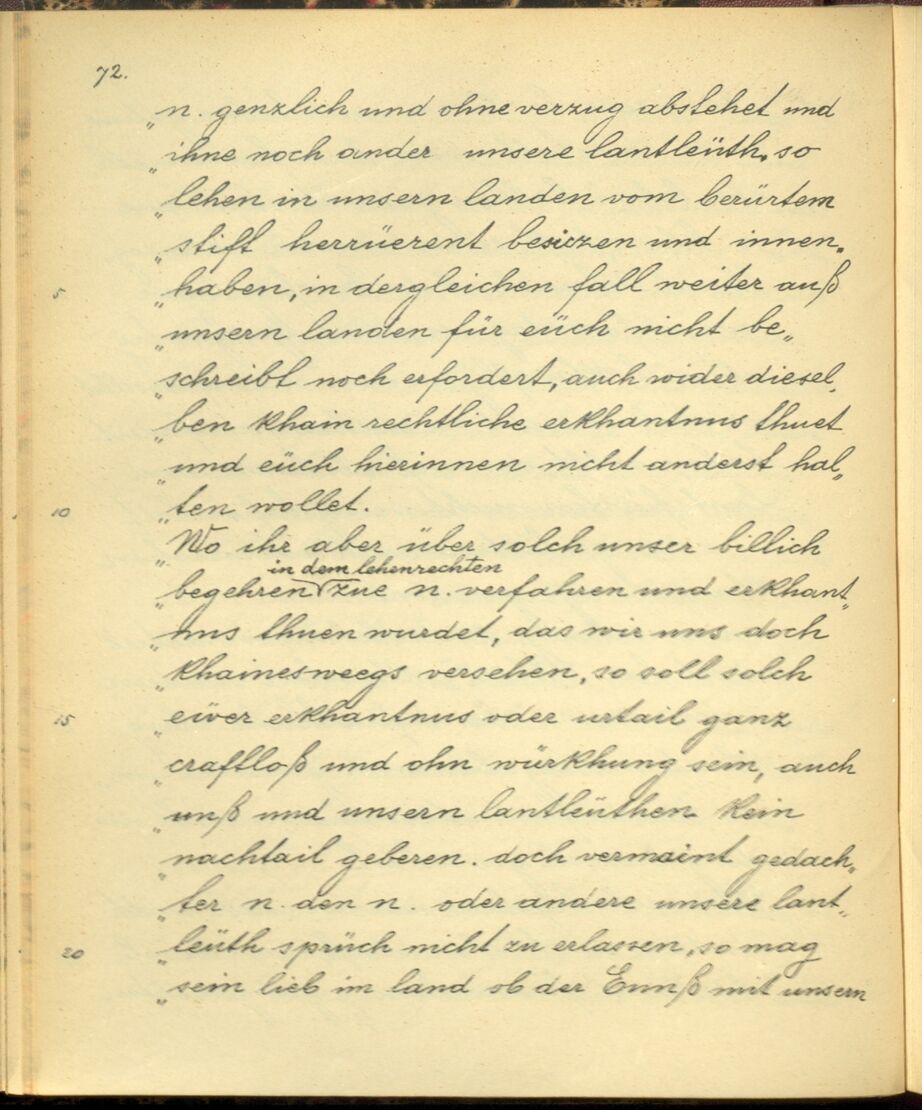 72.
„n. genzlich und ohne verzug abstehet und
„ihne noch ander unsere lantleüth, so
„lehen in unsern landen vom berürtem
„stift herrüerent besiczen und innen„
5 „haben, in dergleichen fall weiter auß
„unsern landen für eüch nicht be„
„schreibt noch erfordert, auch wider diesel„
„ben khain rechtliche erkhantnus thuet
„und eüch hierinnen nicht anderst hal„
10 „ten wollet.
„Wo ihr aber über solch unser billich
in dem lehenrechten
„begehren √ zue n. verfahren und erkhant„
„nus thuen wurdet, das wir uns doch
„khainesweegs versehen, so soll solch
15 „eüver erkhantnus oder urtail ganz
„craftloß und ohn würkhung sein, auch
„unß und unsern lantleüthen kein
„nachtail geberen. doch vermaint gedach„
„ter n. den n. oder andere unsere lant„
20 „leüth sprüch nicht zu erlassen, so mag
„sein lieb im land ob der Ennß mit unsern